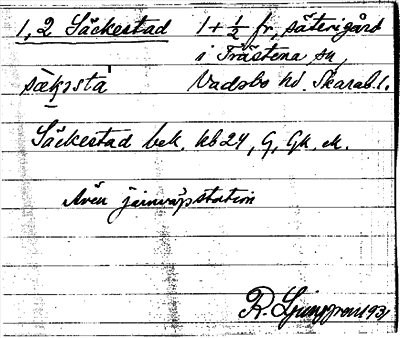 1, 2 Säckestad 1 + ½ fr, säterigård
i Trästena sn,
sæḳısta Vadsbo hd. Skarab. l.
Säckestad bek. hb 24, G, Gk, ek.
Även järnvägsstation
R. Ljunggren 1931